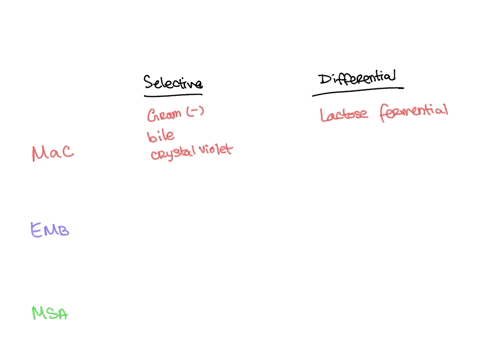 Selective
Differential
Gram (-)
Lactose fermential
bile
MaC
crystal violet
EMB
MSA